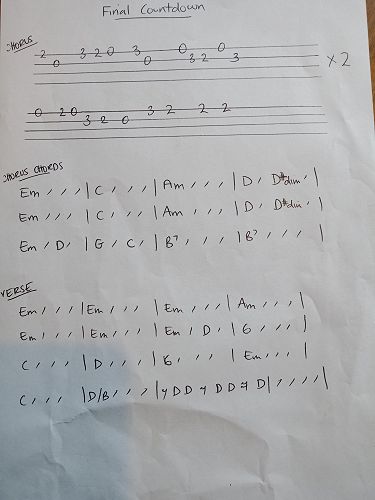 Final Countdown
CHORUS
2 0 3 2 0 3 0 0 3 2 0 3 x2
0 2 0 3 2 0 3 2 2 2
CHORUS CHORDS
Em / / / | C / / / | Am / / / | D / D#dim / |
Em / / / | C / / / | Am / / / | D / D#dim / |
Em / D / | G / C / | B7 / / / | B7 / / / |
VERSE
Em / / / | Em / / / | Em / / / | Am / / / |
Em / / / | Em / / / | Em / D / | G / / / |
C / / / | D / / / | G / / / | Em / / / |
C / / / | D/B / / / | D D D D D | / / / / |